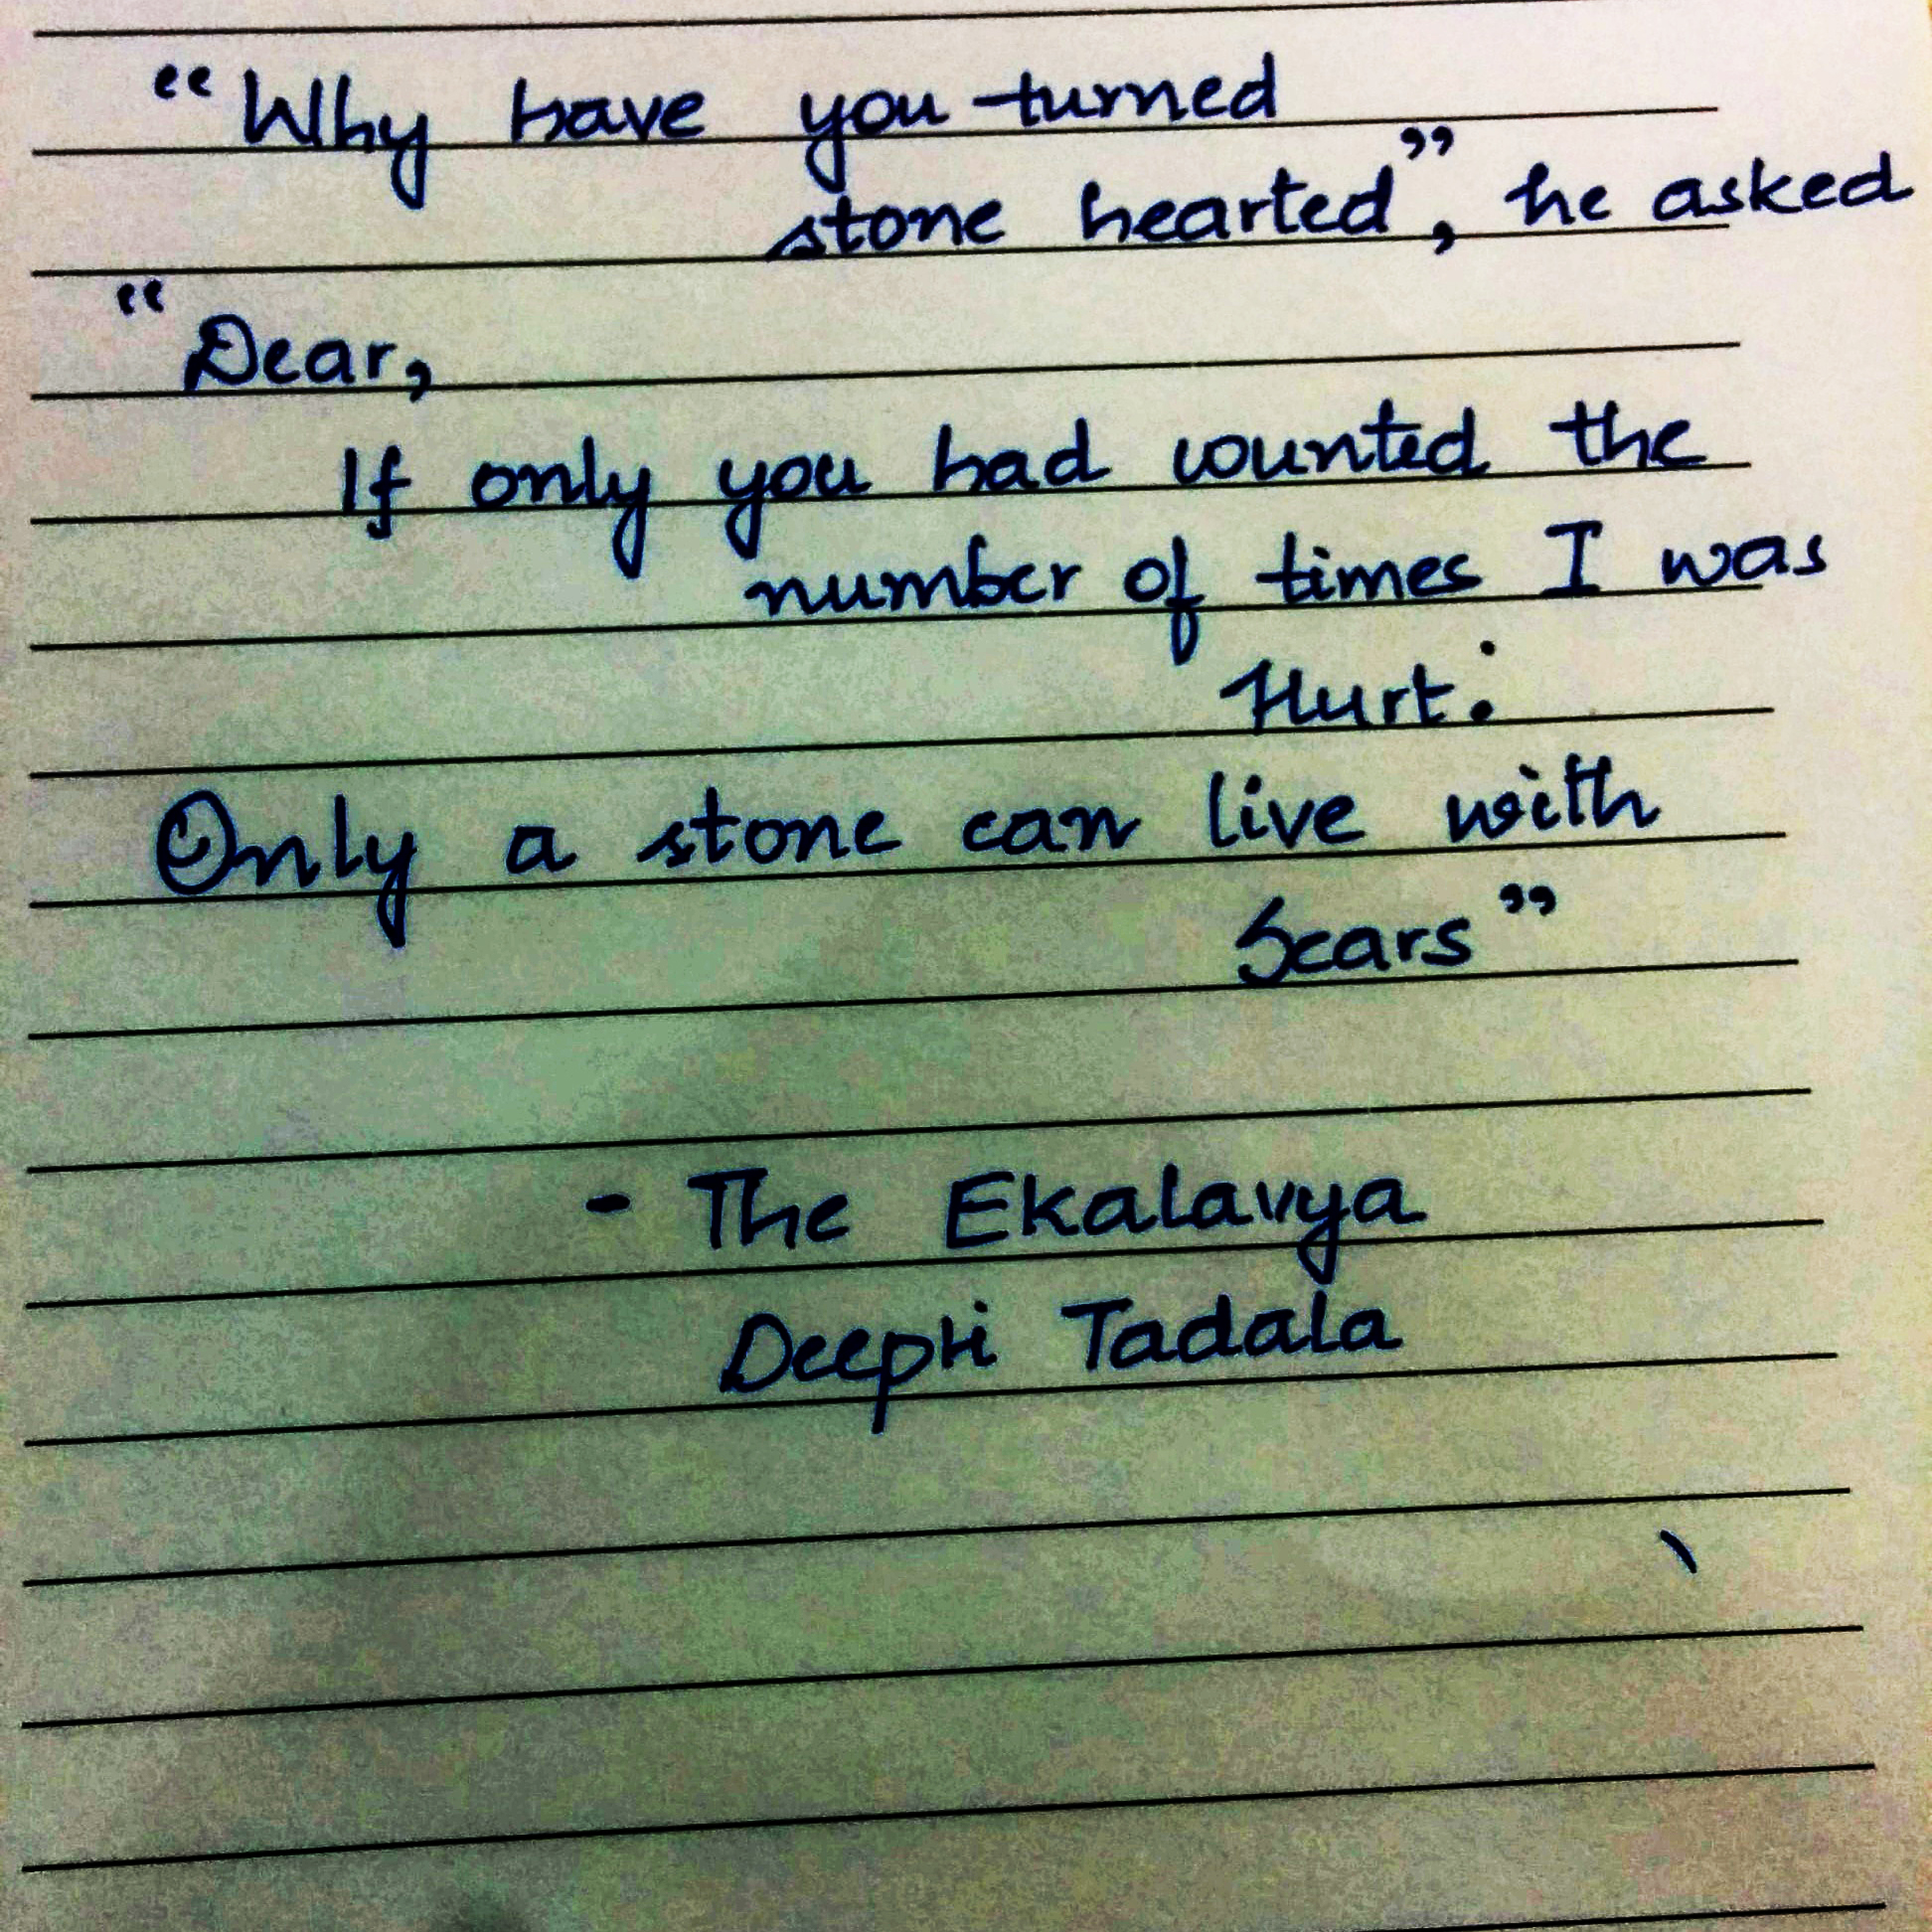 “Why have you turned
stone hearted”, he asked
“Dear,
If only you had counted the
number of times I was
Hurt:
Only a stone can live with
Scars”
- The Ekalavya
Deepti Tadala